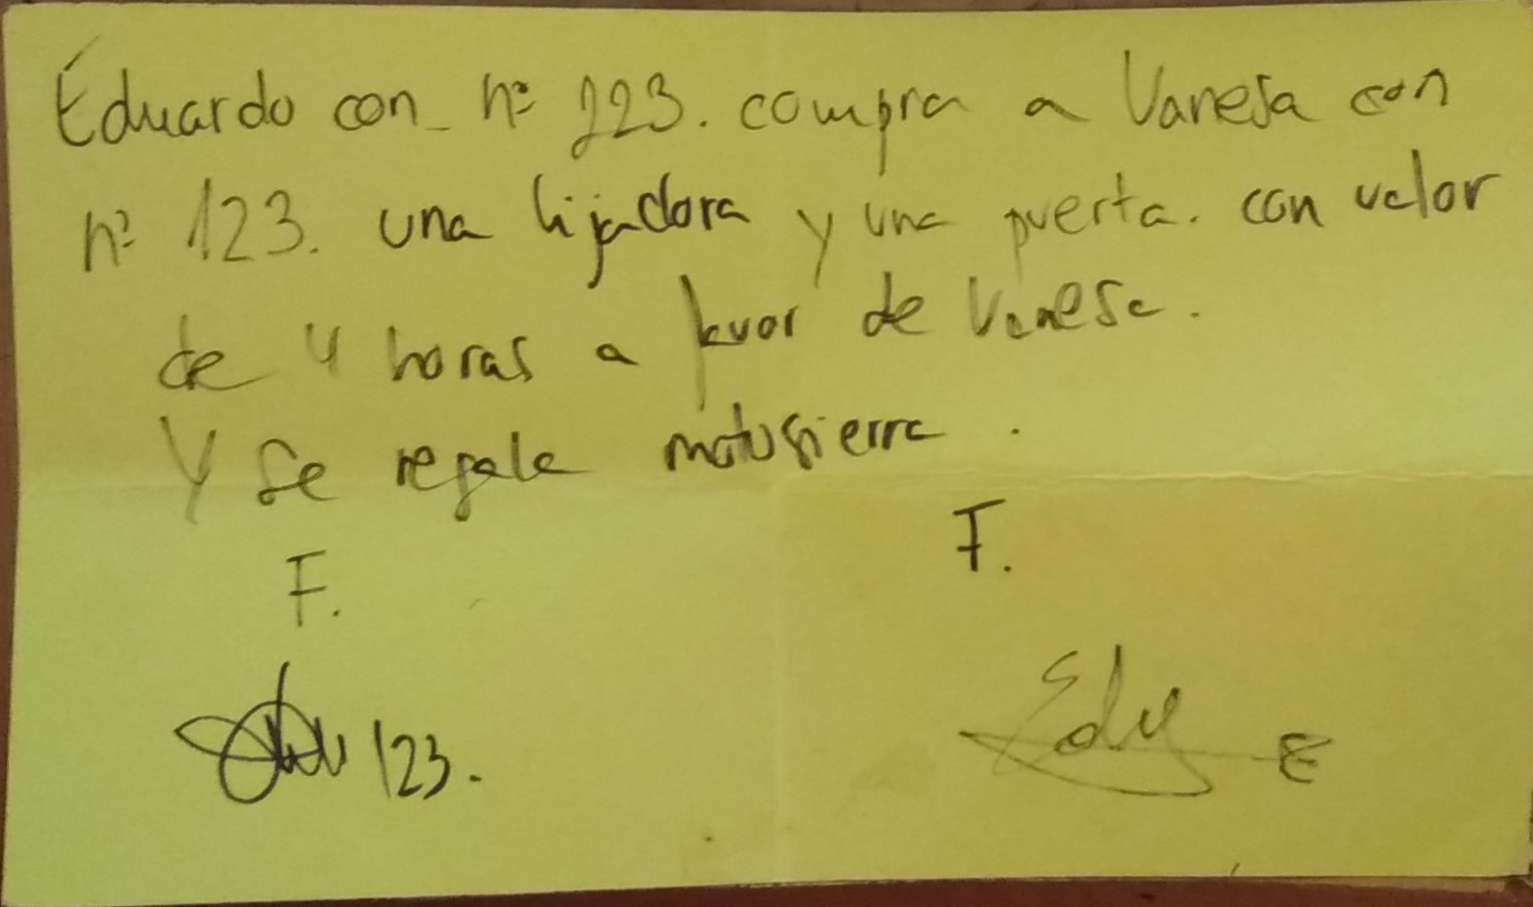 Eduardo con nº 223. compra a Vanesa con
nº 123. una lijadora y una puerta. con valor
de 4 horas a favor de Vanesa.
Y se regala motosierra.
F. F.
123.